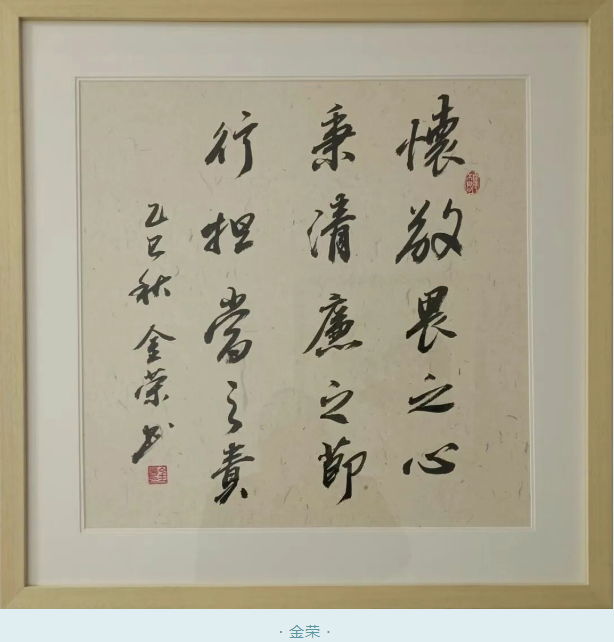 懷敬畏之心
秉清廉之節
行担當之責
乙巳秋 金荣书
· 金荣 ·